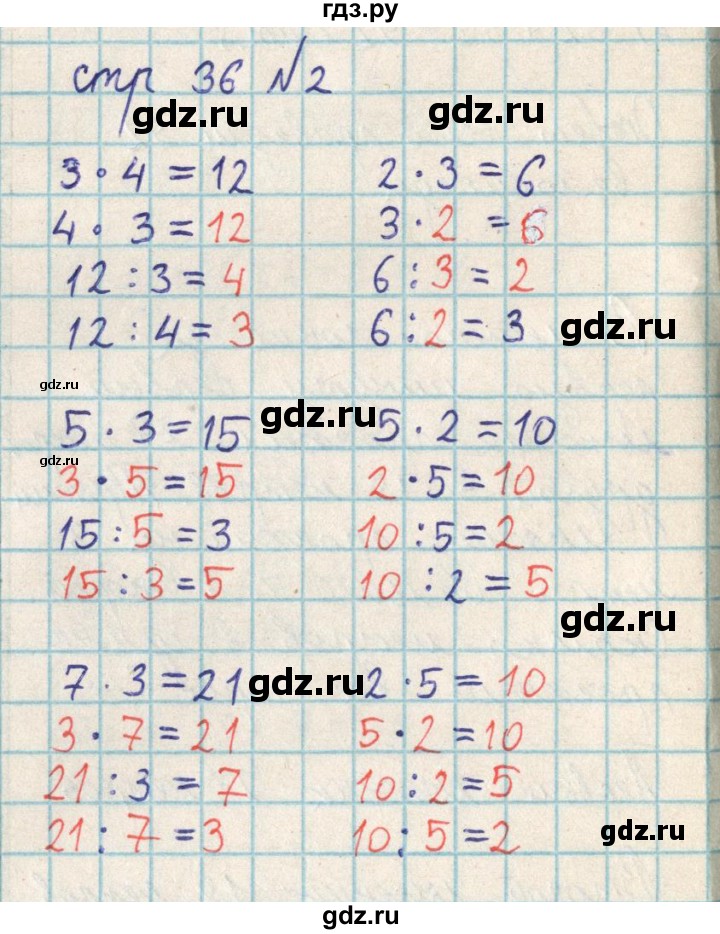 гдз.ру
стр 36 №2
gdz.ru gdz.ru
3 · 4 = 12
4 · 3 = 12
12 : 3 = 4
12 : 4 = 3
2 · 3 = 6
3 · 2 = 6
6 : 3 = 2
6 : 2 = 3
gdz.ru
gdz.ru
gdz.ru
gdz.ru
5 · 3 = 15
3 · 5 = 15
15 : 5 = 3
15 : 3 = 5
5 · 2 = 10
2 · 5 = 10
10 : 5 = 2
10 : 2 = 5
gdz.ru
gdz.ru
7 · 3 = 21
3 · 7 = 21
21 : 3 = 7
21 : 7 = 3
2 · 5 = 10
5 · 2 = 10
10 : 2 = 5
10 : 5 = 2
gdz.ru
gdz.ru